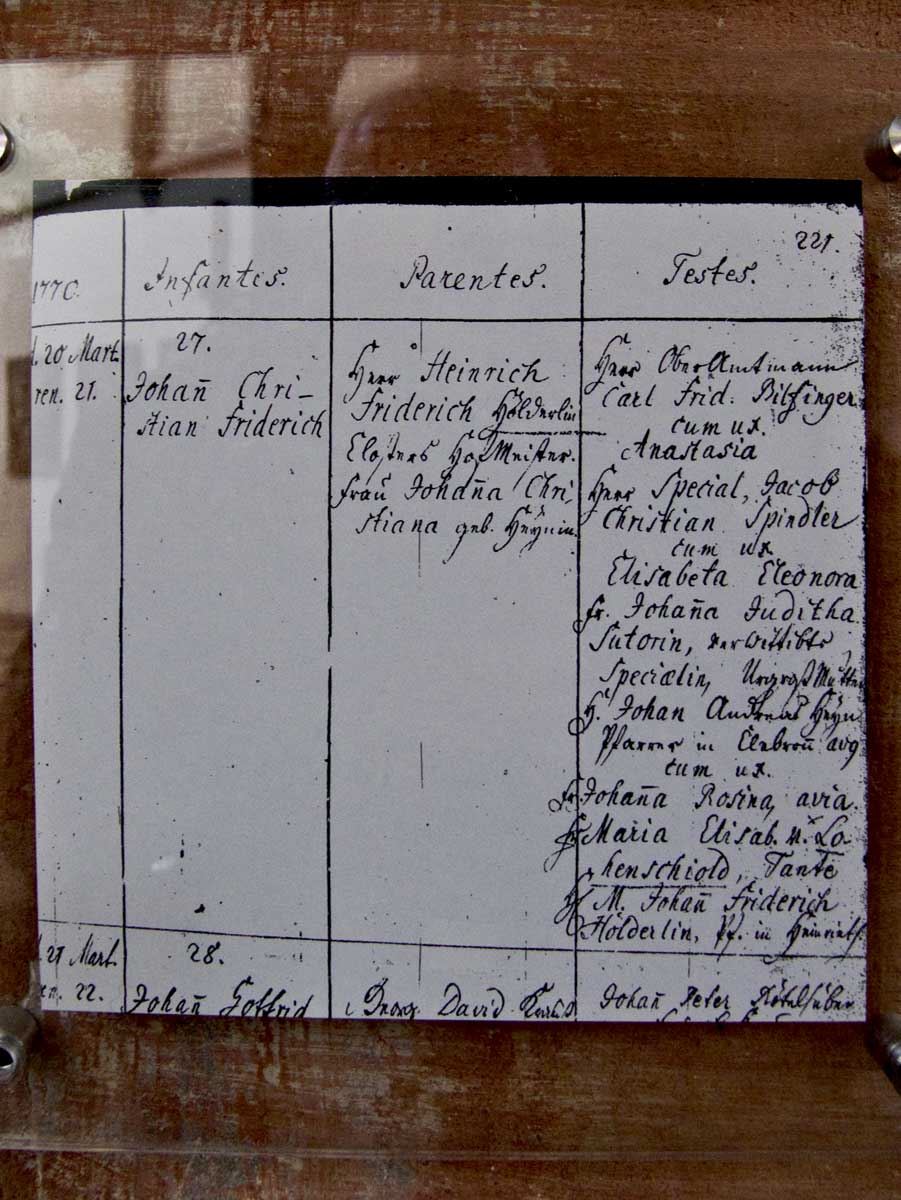 221.
1770. Infantes. Parentes. Testes.
d. 20 Mart.
ren. 21.
27.
Johan̄ Chri-
stian Friderich
Herr Heinrich
Friderich Hölderlin
Closters Hof Meister.
Frau Johan̄a Chri
stiana geb. Heynin.
Herr OberAmtmann
Carl Frid: Bilfinger
cum ux.
Anastasia
Herr Special, Jacob
Christian Spindler
cum ux
Elisabeta Eleonora
Fr. Johan̄a Juditha
Sutorin, verwittibte
Specialin, UrgroßMutter
H. Johan Andreas Heyn
Pfarrer in Clebron̄ avg
cum ux.
Fr. Johan̄a Rosina, avia.
Fr. Maria Elisab. v. Lo
henschiold, Tante
H. M. Johan̄ Friderich
Hölderlin, Pf. in
d. 21 Mart.
ren. 22.
28.
Johan̄ Gottfrid
Georg David
Johan̄ Peter